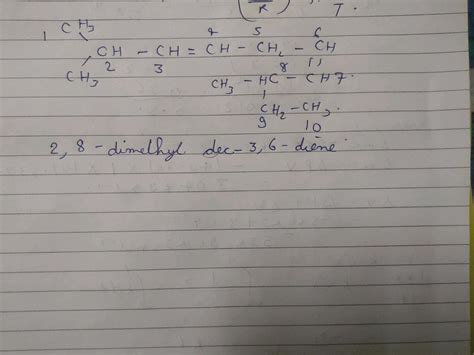 R T.
1 CH₃ 4 5 6
CH — CH = CH — CH₂ — CH
CH₃ 2 3 8 ||
CH₃ — HC — CH 7.
|
CH₂ — CH₃.
9 10
2, 8 - dimethyl dec - 3, 6 - diene